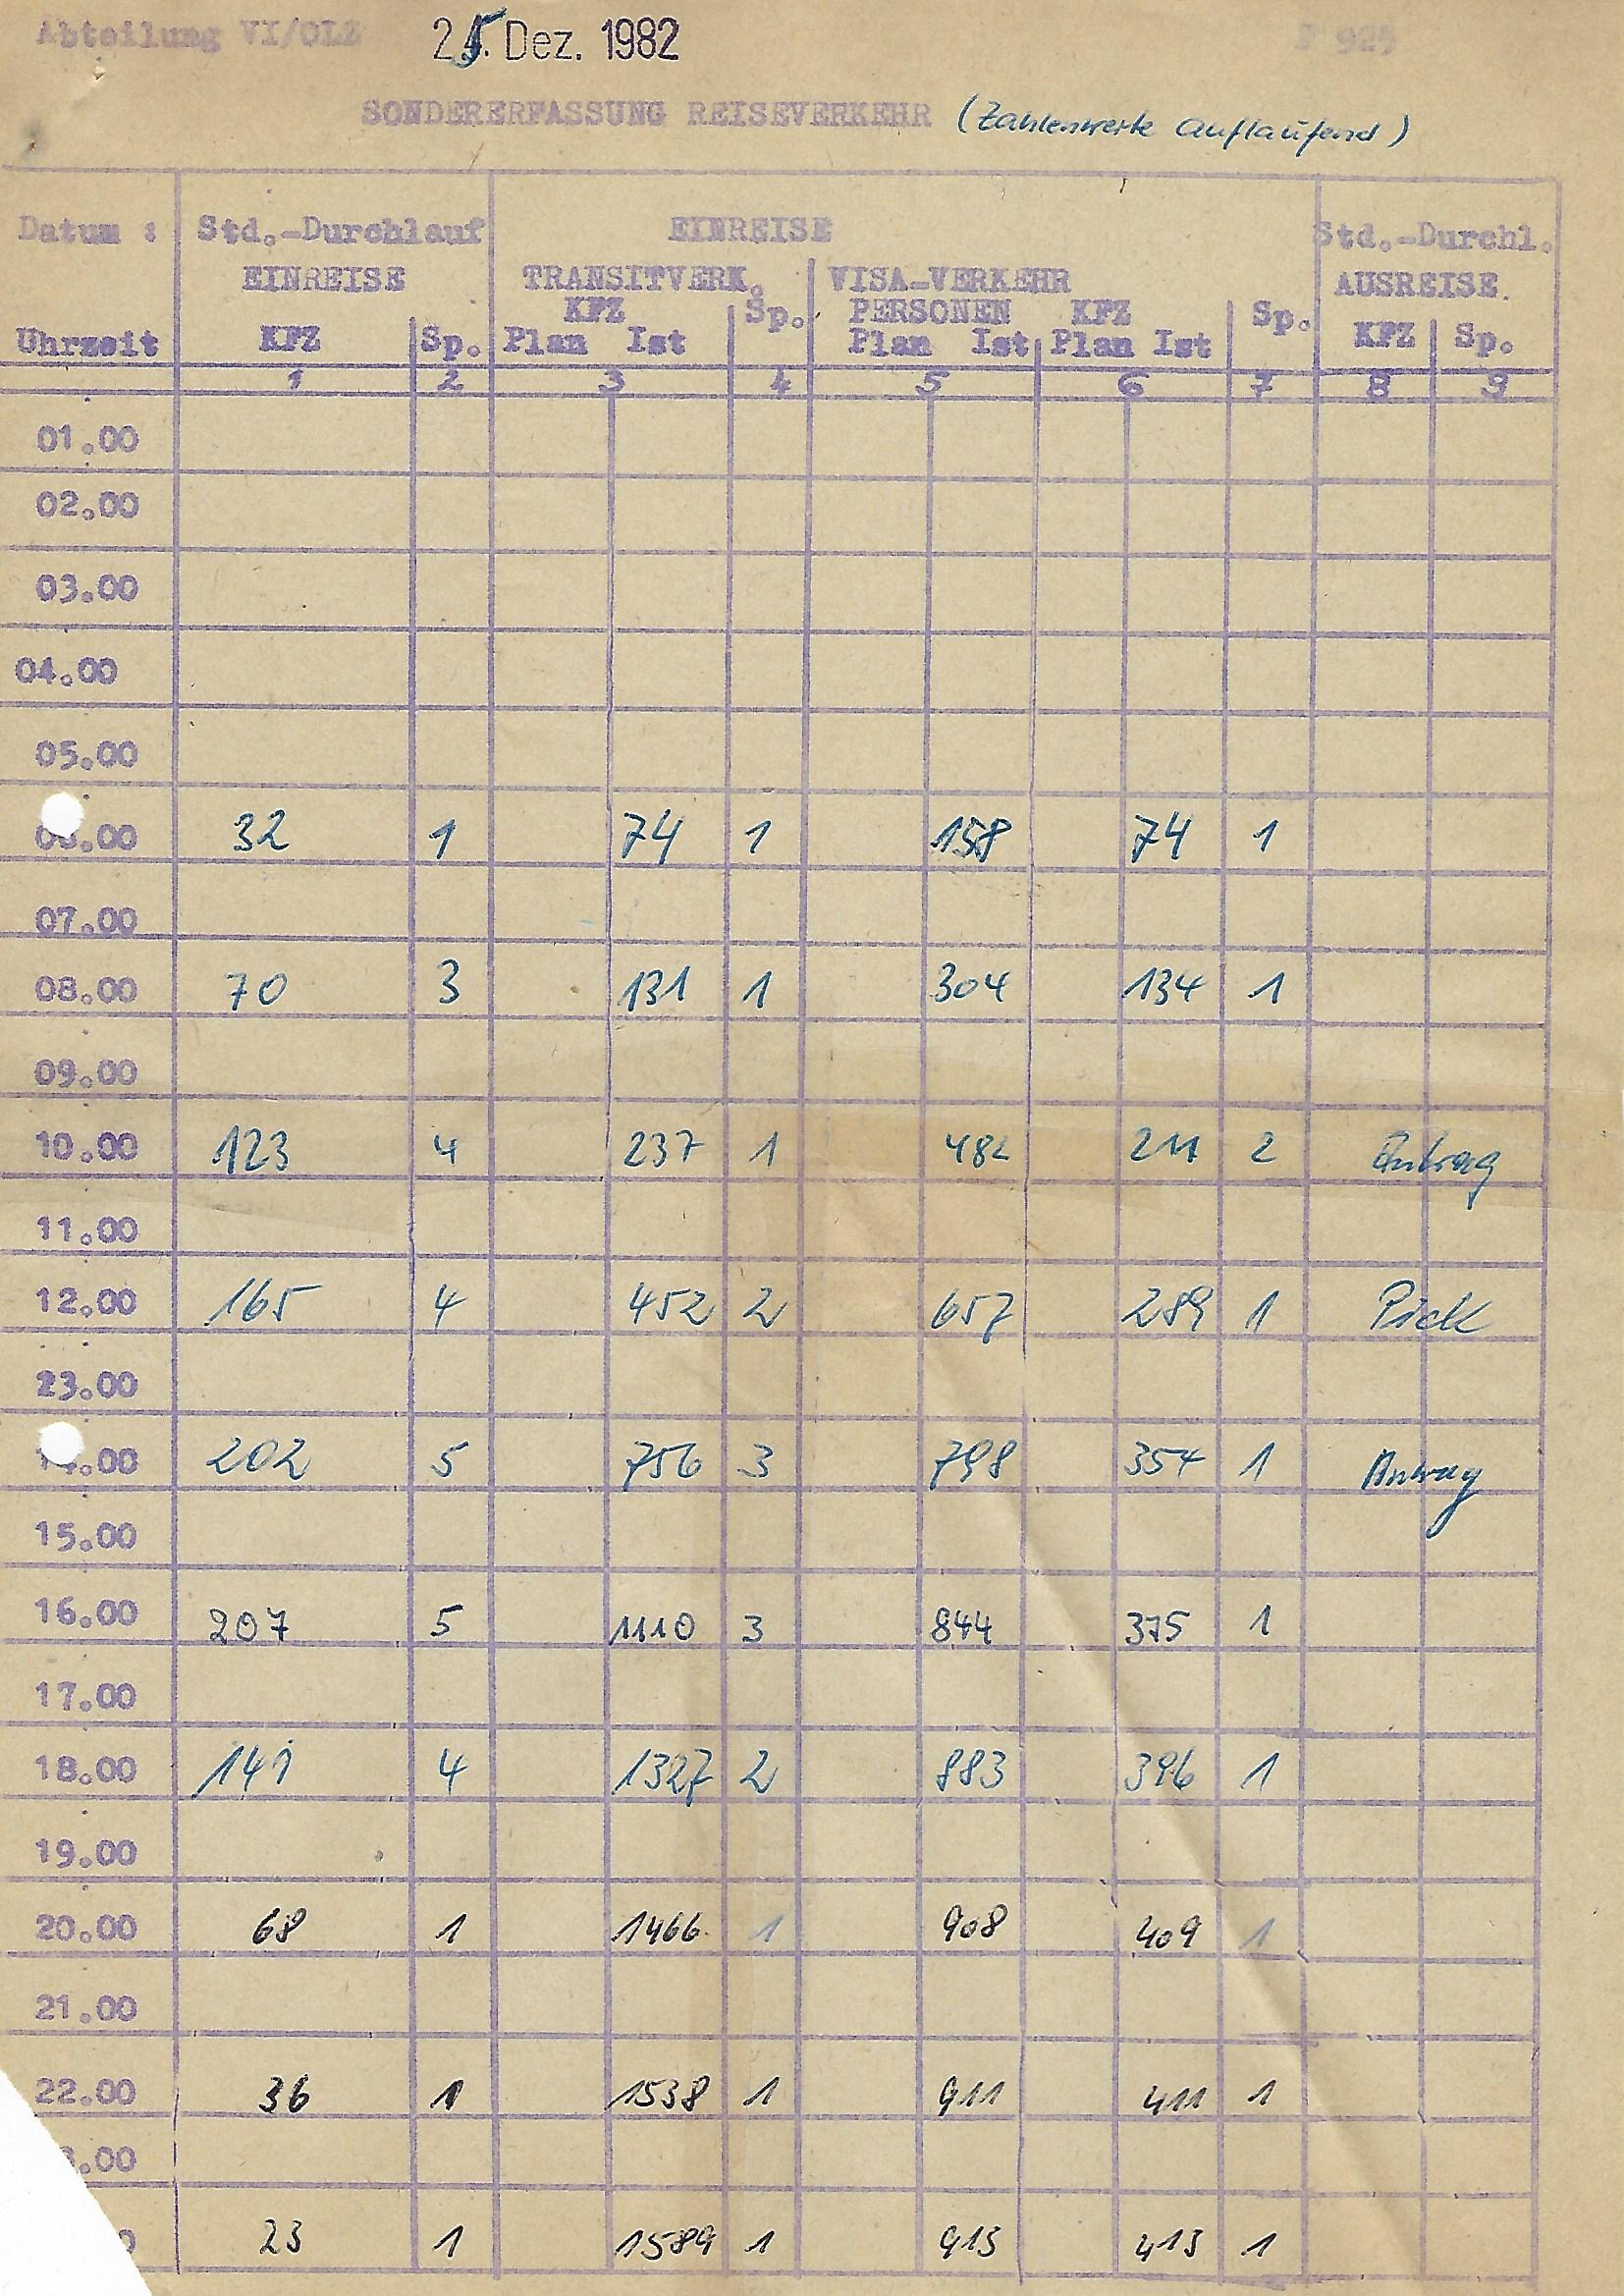 Abteilung VI/OLZ 25. Dez. 1982 F 925
SONDERERFASSUNG REISEVERKEHR (Zahlenwerte auflaufend)
Datum : Std.-Durchlauf EINREISE Std.-Durchl.
EINREISE TRANSITVERK. VISA-VERKEHR AUSREISE.
KFZ Sp. PERSONEN KFZ Sp.
Uhrzeit KFZ Sp. Plan Ist Plan Ist Plan Ist KFZ Sp.
1 2 3 4 5 6 7 8 9
01.00
02.00
03.00
04.00
05.00
06.00 32 1 74 1 158 74 1
07.00
08.00 70 3 131 1 304 134 1
09.00
10.00 123 4 237 1 482 211 2
11.00
12.00 165 4 452 2 657 289 1 Pick
23.00
14.00 202 5 756 3 798 354 1
15.00
16.00 207 5 1110 3 844 375 1
17.00
18.00 141 4 1327 2 883 396 1
19.00
20.00 68 1 1466 1 908 409 1
21.00
22.00 36 1 1538 1 911 411 1
3.00
0 23 1 1589 1 913 413 1